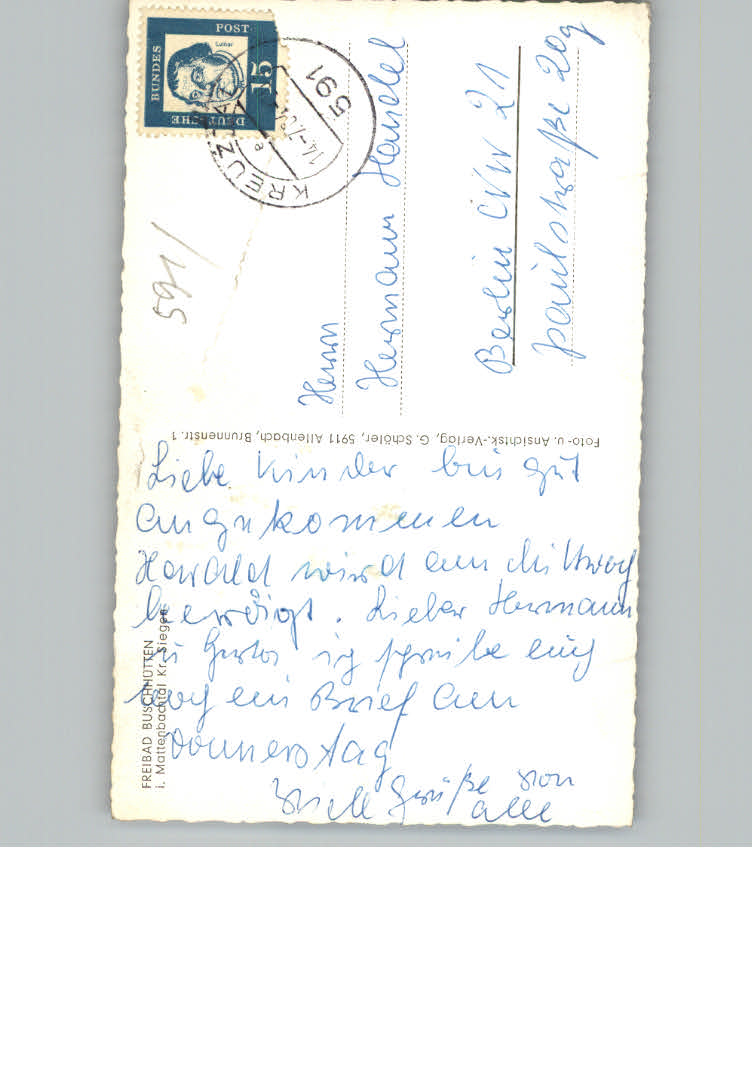 Liebe Kinder bin gut
angekommen
Harald wird am Mittwoch
beerdigt. Lieber Hermann
u ich schreibe euch
noch ein Brief am
Donnerstag
Viele Grüße von
alle
Herrn
Hermann
Berlin NW 21
Paulstraße 20g
FREIBAD BUSCHHÜTTEN
i. Mattenbachtal Kr. Siegen
Foto- u. Ansichtsk.-Verlag, G. Schöler, 5911 Allenbach, Brunnenstr. 1
DEUTSCHE
BUNDES
POST
Luther
15
591
KREUZTAL
a
591